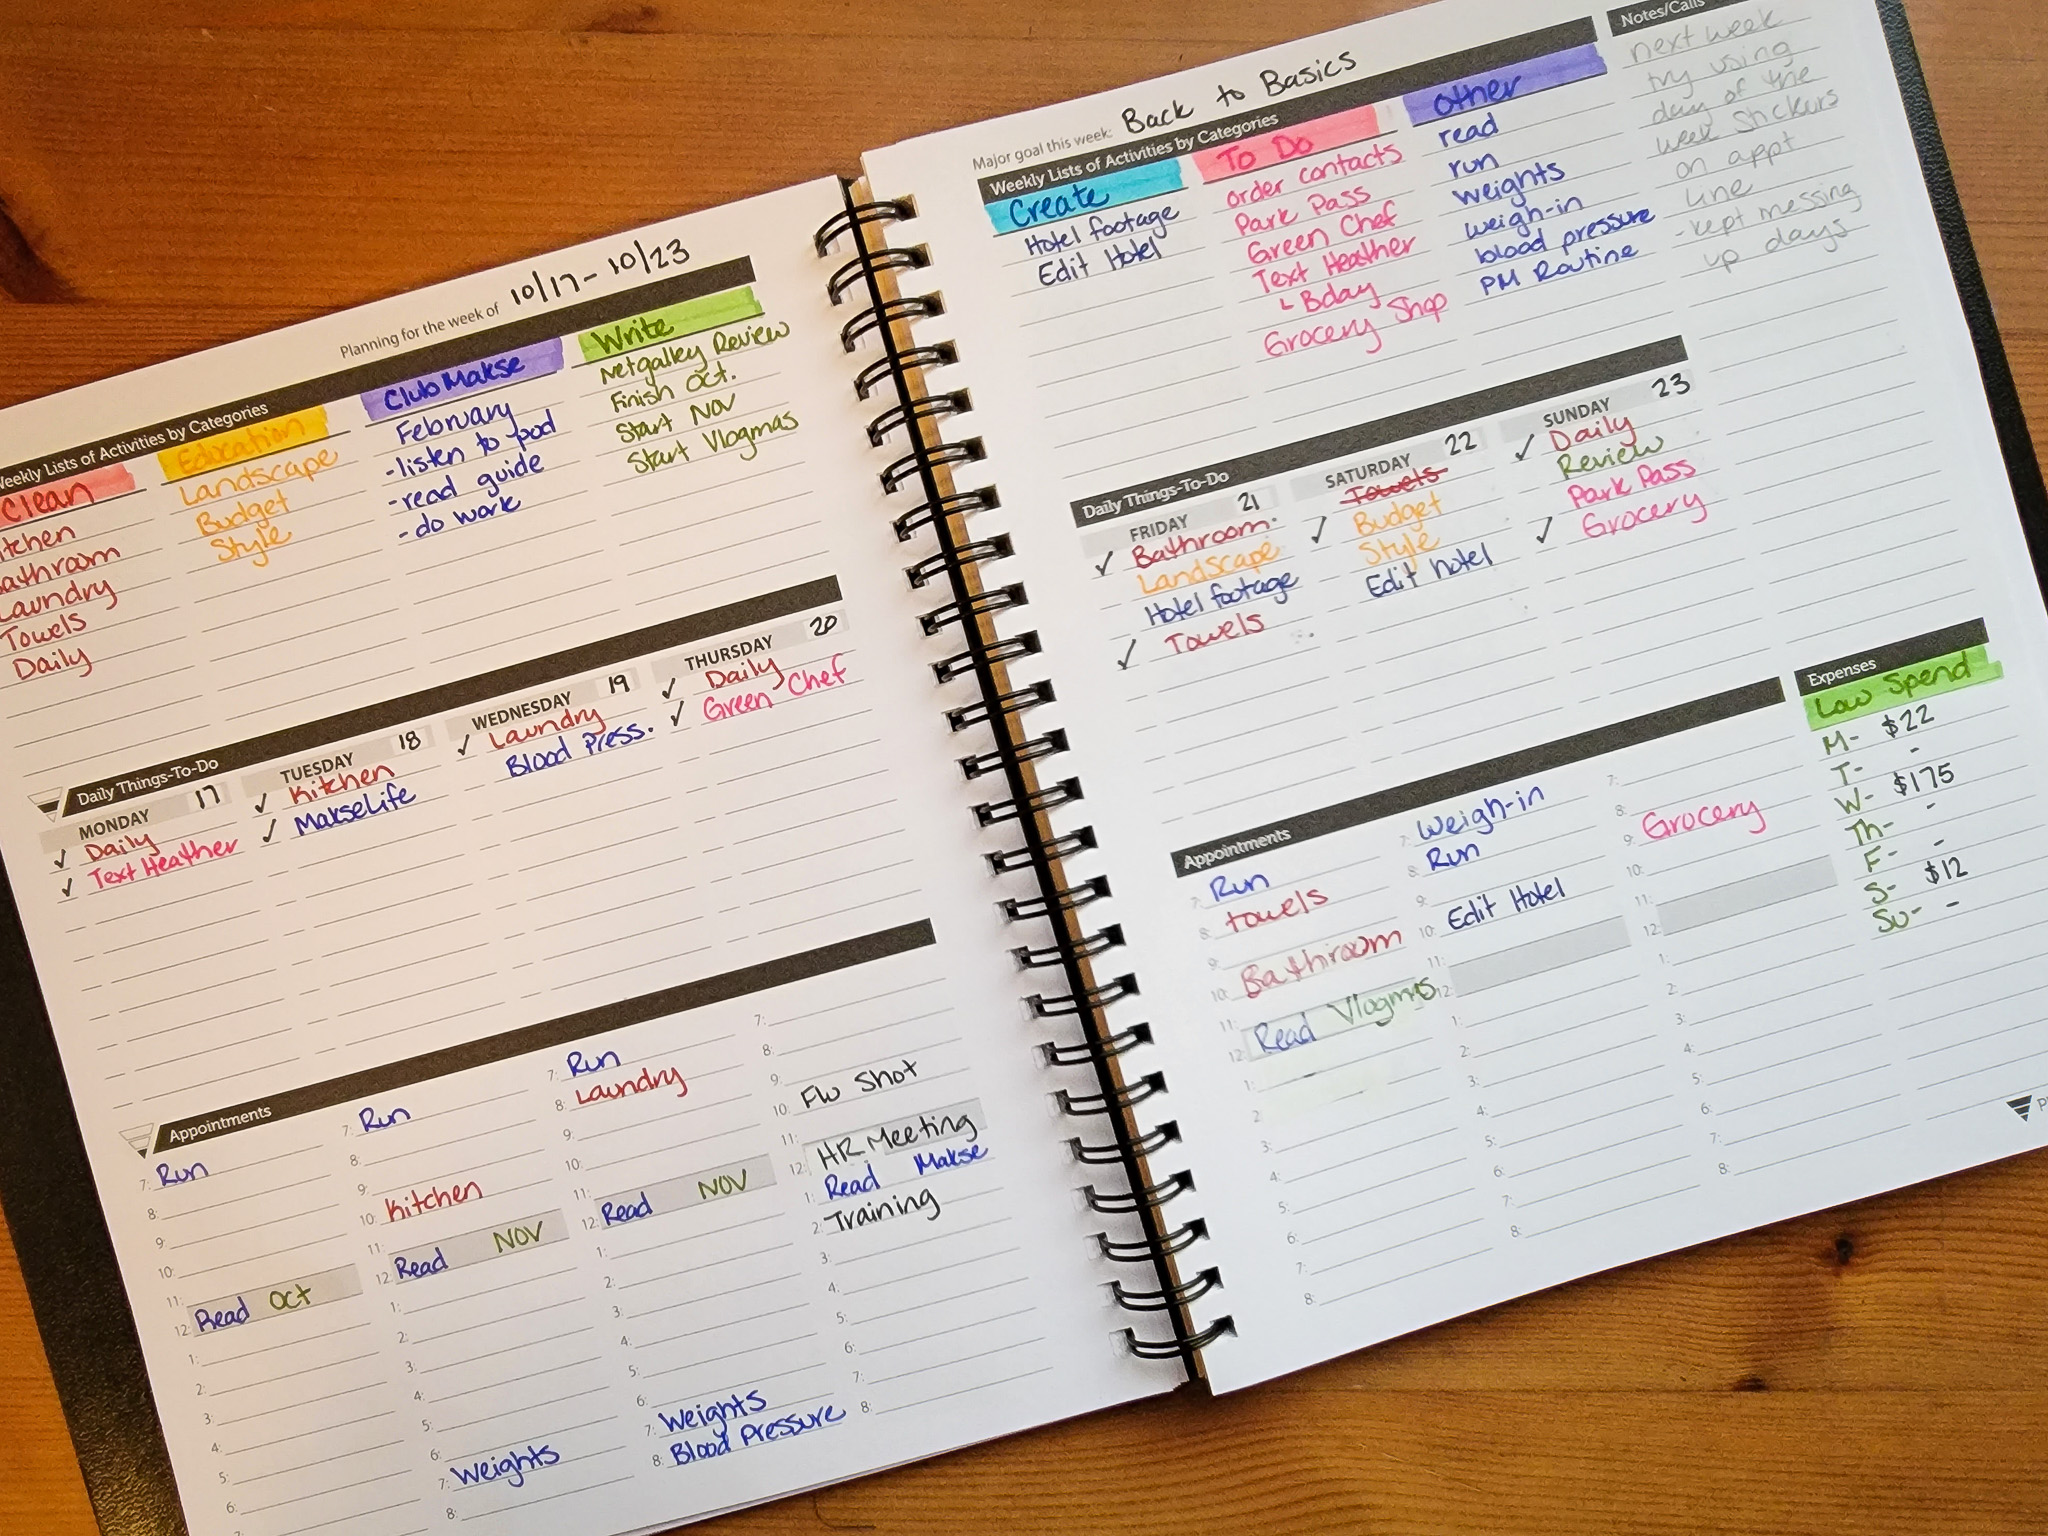 Planning for the week of 10/17 - 10/23
Weekly Lists of Activities by Categories
Clean
Kitchen
Bathroom
Laundry
Towels
Daily
Education
Landscape
Budget
Style
Club Makse
February
- listen to pod
- read guide
- do work
Write
Netgalley Review
Finish Oct.
Start NOV
Start Vlogmas
Daily Things-To-Do
MONDAY 17
✓ Daily
✓ Text Heather
TUESDAY 18
✓ Kitchen
✓ MakseLife
WEDNESDAY 19
✓ Laundry
Blood Press.
THURSDAY 20
✓ Daily
✓ Green Chef
Appointments
7: Run
8:
9:
10:
11:
12: Read Oct
1:
2:
3:
4:
5:
6:
7:
7: Run
8:
9:
10: Kitchen
11:
12: Read NOV
1:
2:
3:
4:
5:
6:
7: Weights
8:
7: Run
8: Laundry
9:
10:
11:
12: Read NOV
1:
2:
3:
4:
5:
6:
7: Weights
8: Blood Pressure
7:
8:
9:
10: Flu Shot
11:
12: HR Meeting
1: Read Makse
2: Training
3:
4:
5:
6:
7:
8:
Major goal this week: Back to Basics
Weekly Lists of Activities by Categories
Create
Hotel footage
Edit Hotel
To Do
order contacts
Park Pass
Green Chef
Text Heather
↳ Bday
Grocery Shop
other
read
run
weights
weigh-in
blood pressure
PM Routine
Notes/Calls
next week
try using
day of the
week stickers
on appt
line
- kept messing
up days
Daily Things-To-Do
FRIDAY 21
✓ Bathroom
Landscape
Hotel footage
✓ Towels
SATURDAY 22
Towels
✓ Budget
Style
Edit hotel
SUNDAY 23
✓ Daily
Review
Park Pass
✓ Grocery
Appointments
7: Run
8: towels
9:
10: Bathroom
11:
12: Read Vlogmas
1:
2:
3:
4:
5:
6:
7:
8:
7: Weigh-in
8: Run
9:
10: Edit Hotel
11:
12:
1:
2:
3:
4:
5:
6:
7:
8:
7:
8:
9: Grocery
10:
11:
12:
1:
2:
3:
4:
5:
6:
7:
8:
Expenses
Low Spend
M- $22
T- -
W- $175
Th- -
F- -
S- $12
Su- -